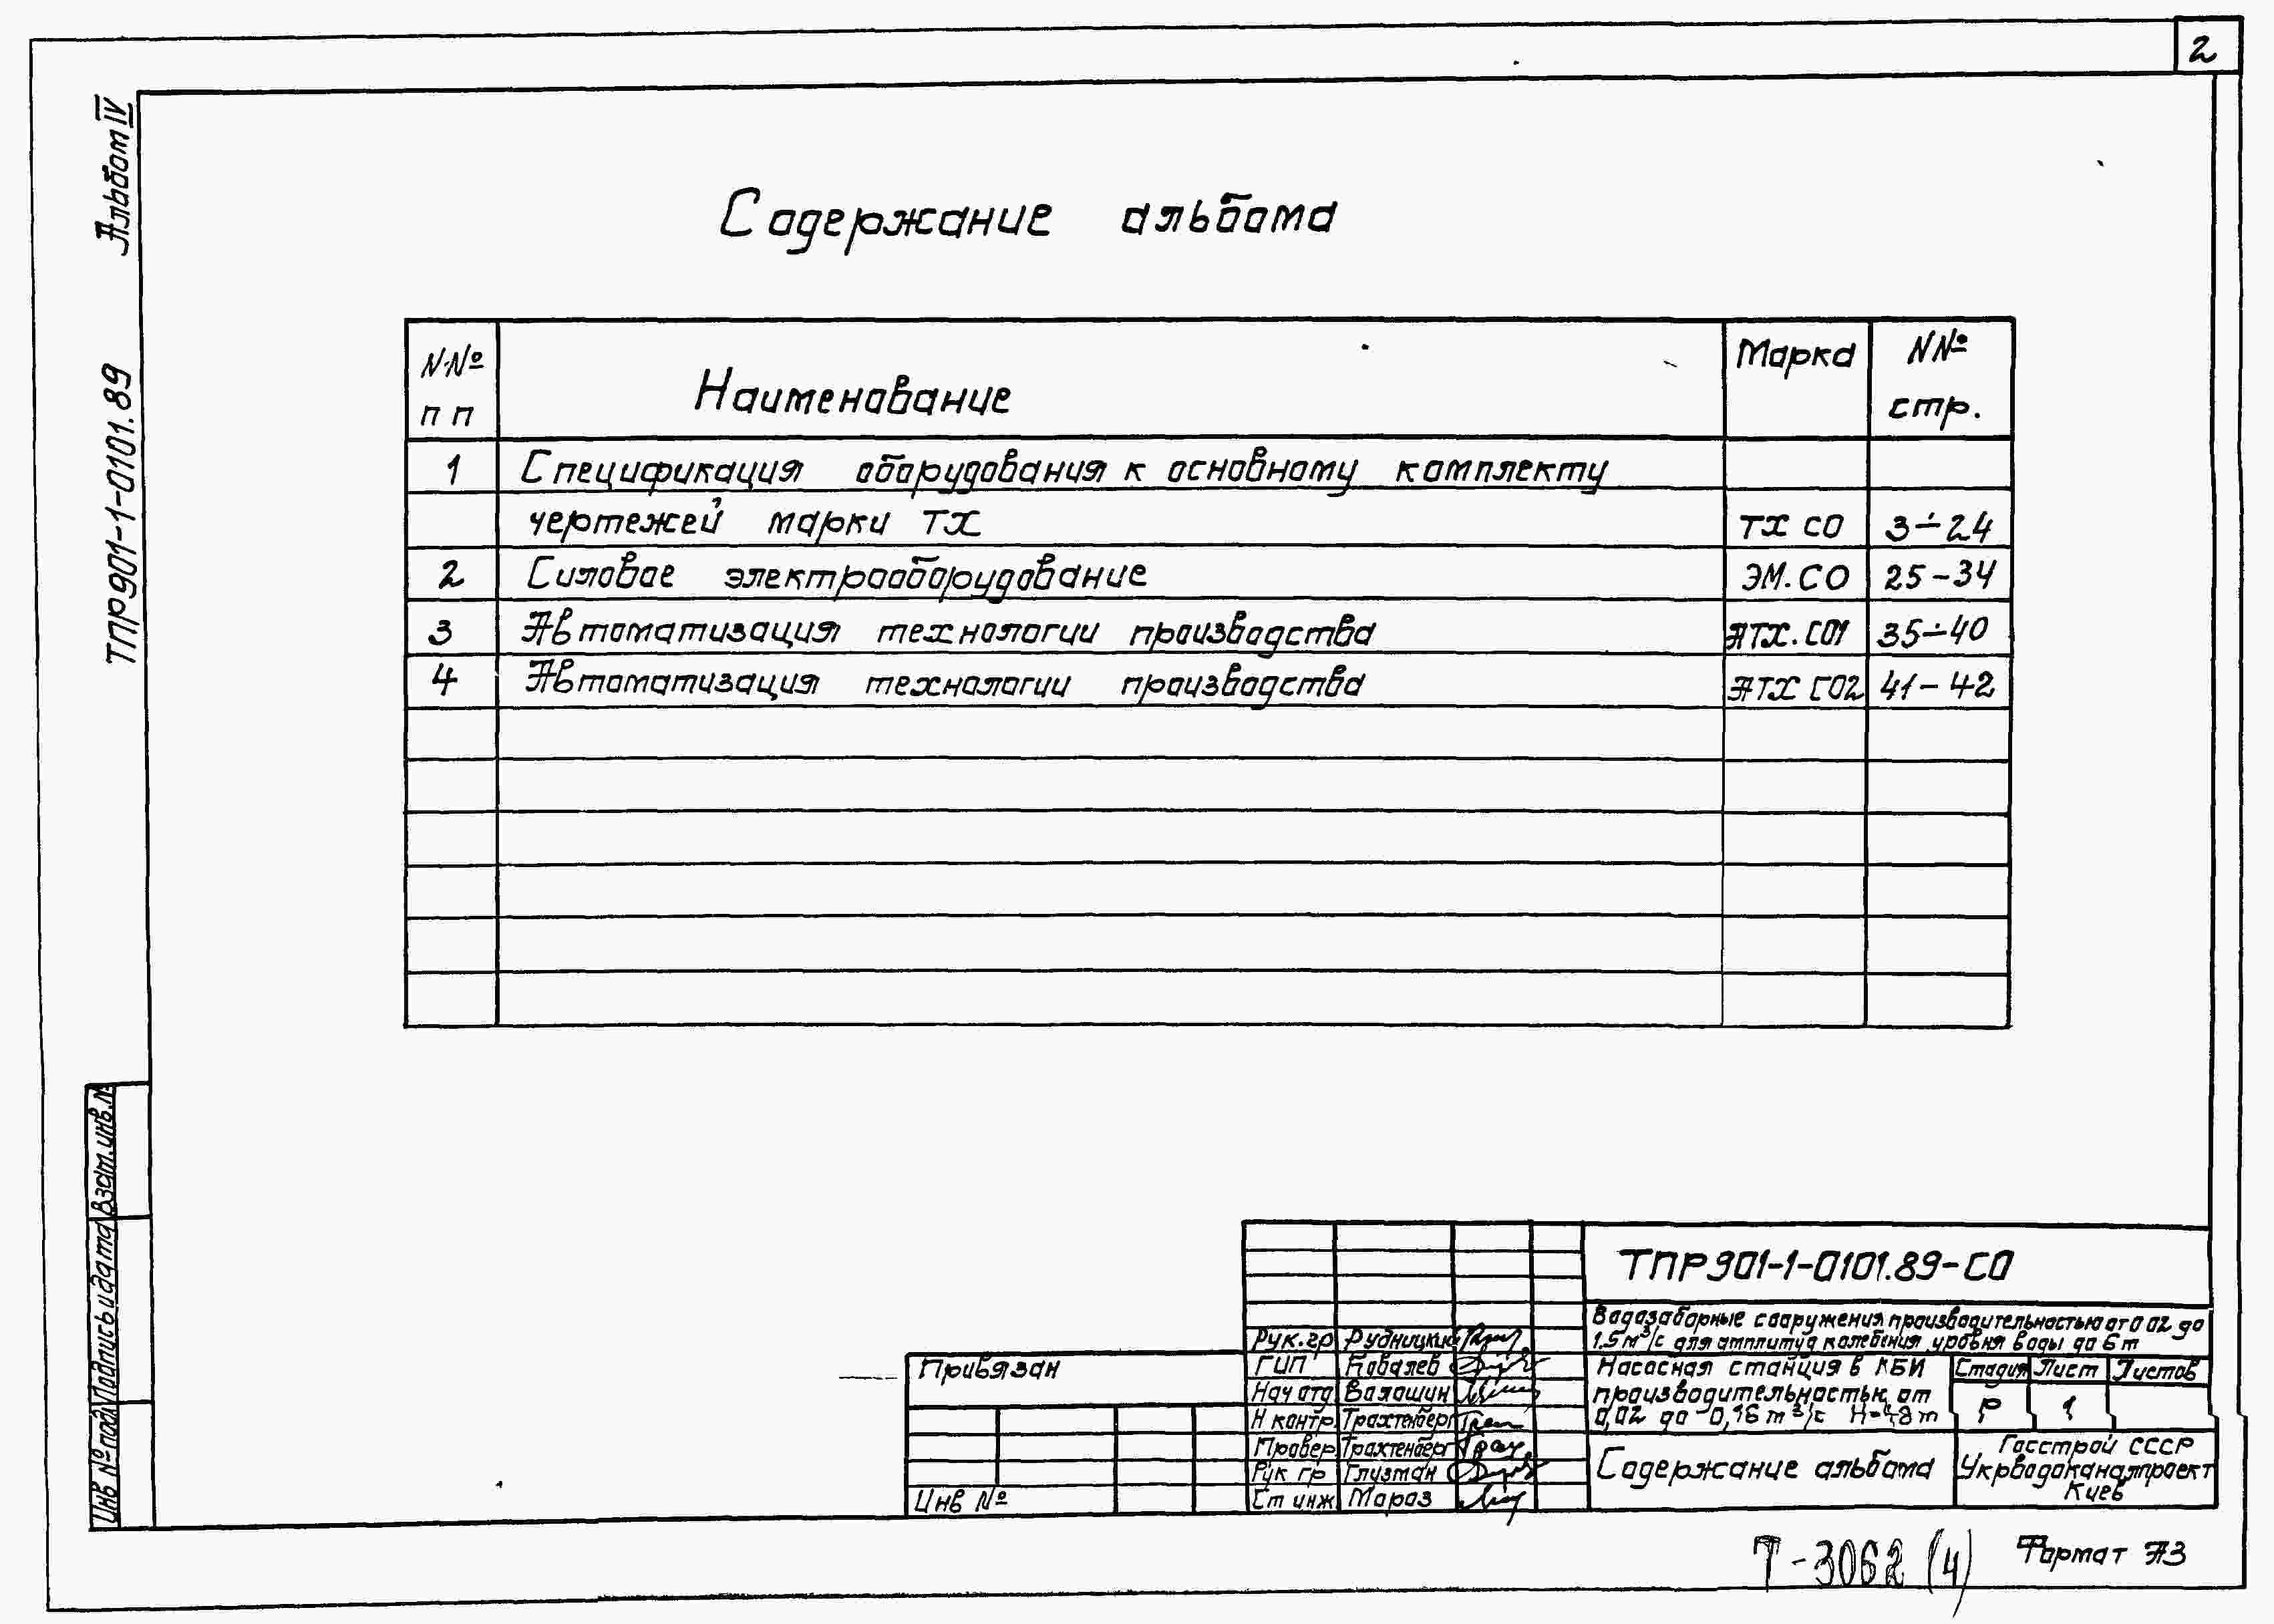 2
Альбом IV
ТПР901-1-0101.89
Содержание альбома
N№ пп Наименование Марка N№ стр.
1 Спецификация оборудования к основному комплекту
чертежей марки ТХ ТХ СО 3÷24
2 Силовое электрооборудование ЭМ.СО 25-34
3 Автоматизация технологии производства АТХ.СО1 35÷40
4 Автоматизация технологии производства АТХ СО2 41-42
Взам.инв.№
Подпись и дата
Инв № подл
Привязан
Инв №
Рук.гр Рудницкий
ГИП Ковалев
Нач отд Волошин
Н контр. Трахтенберг
Провер. Трахтенберг
Рук гр Глузман
Ст инж Мороз
ТПР901-1-0101.89-СО
Водозаборные сооружения производительностью от 0 02 до
1.5 м³/с для амплитуд колебания уровня воды до 6 м
Насосная станция в
производительностью от
0,02 до 0,16 м³/с
Стадия Лист Листов
Р 1
Содержание альбома
Госстрой СССР
Укрводоканалпроект
Киев
Т-3062 (4)
Формат А3